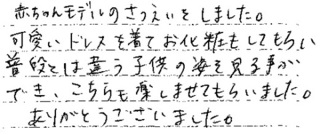 赤ちゃんモデルのさつえいをしました。
可愛いドレスを着てお化粧もしてもらい
普段とは違う子供の姿を見る事が
でき、こちらも楽しませてもらいました。
ありがとうございました。